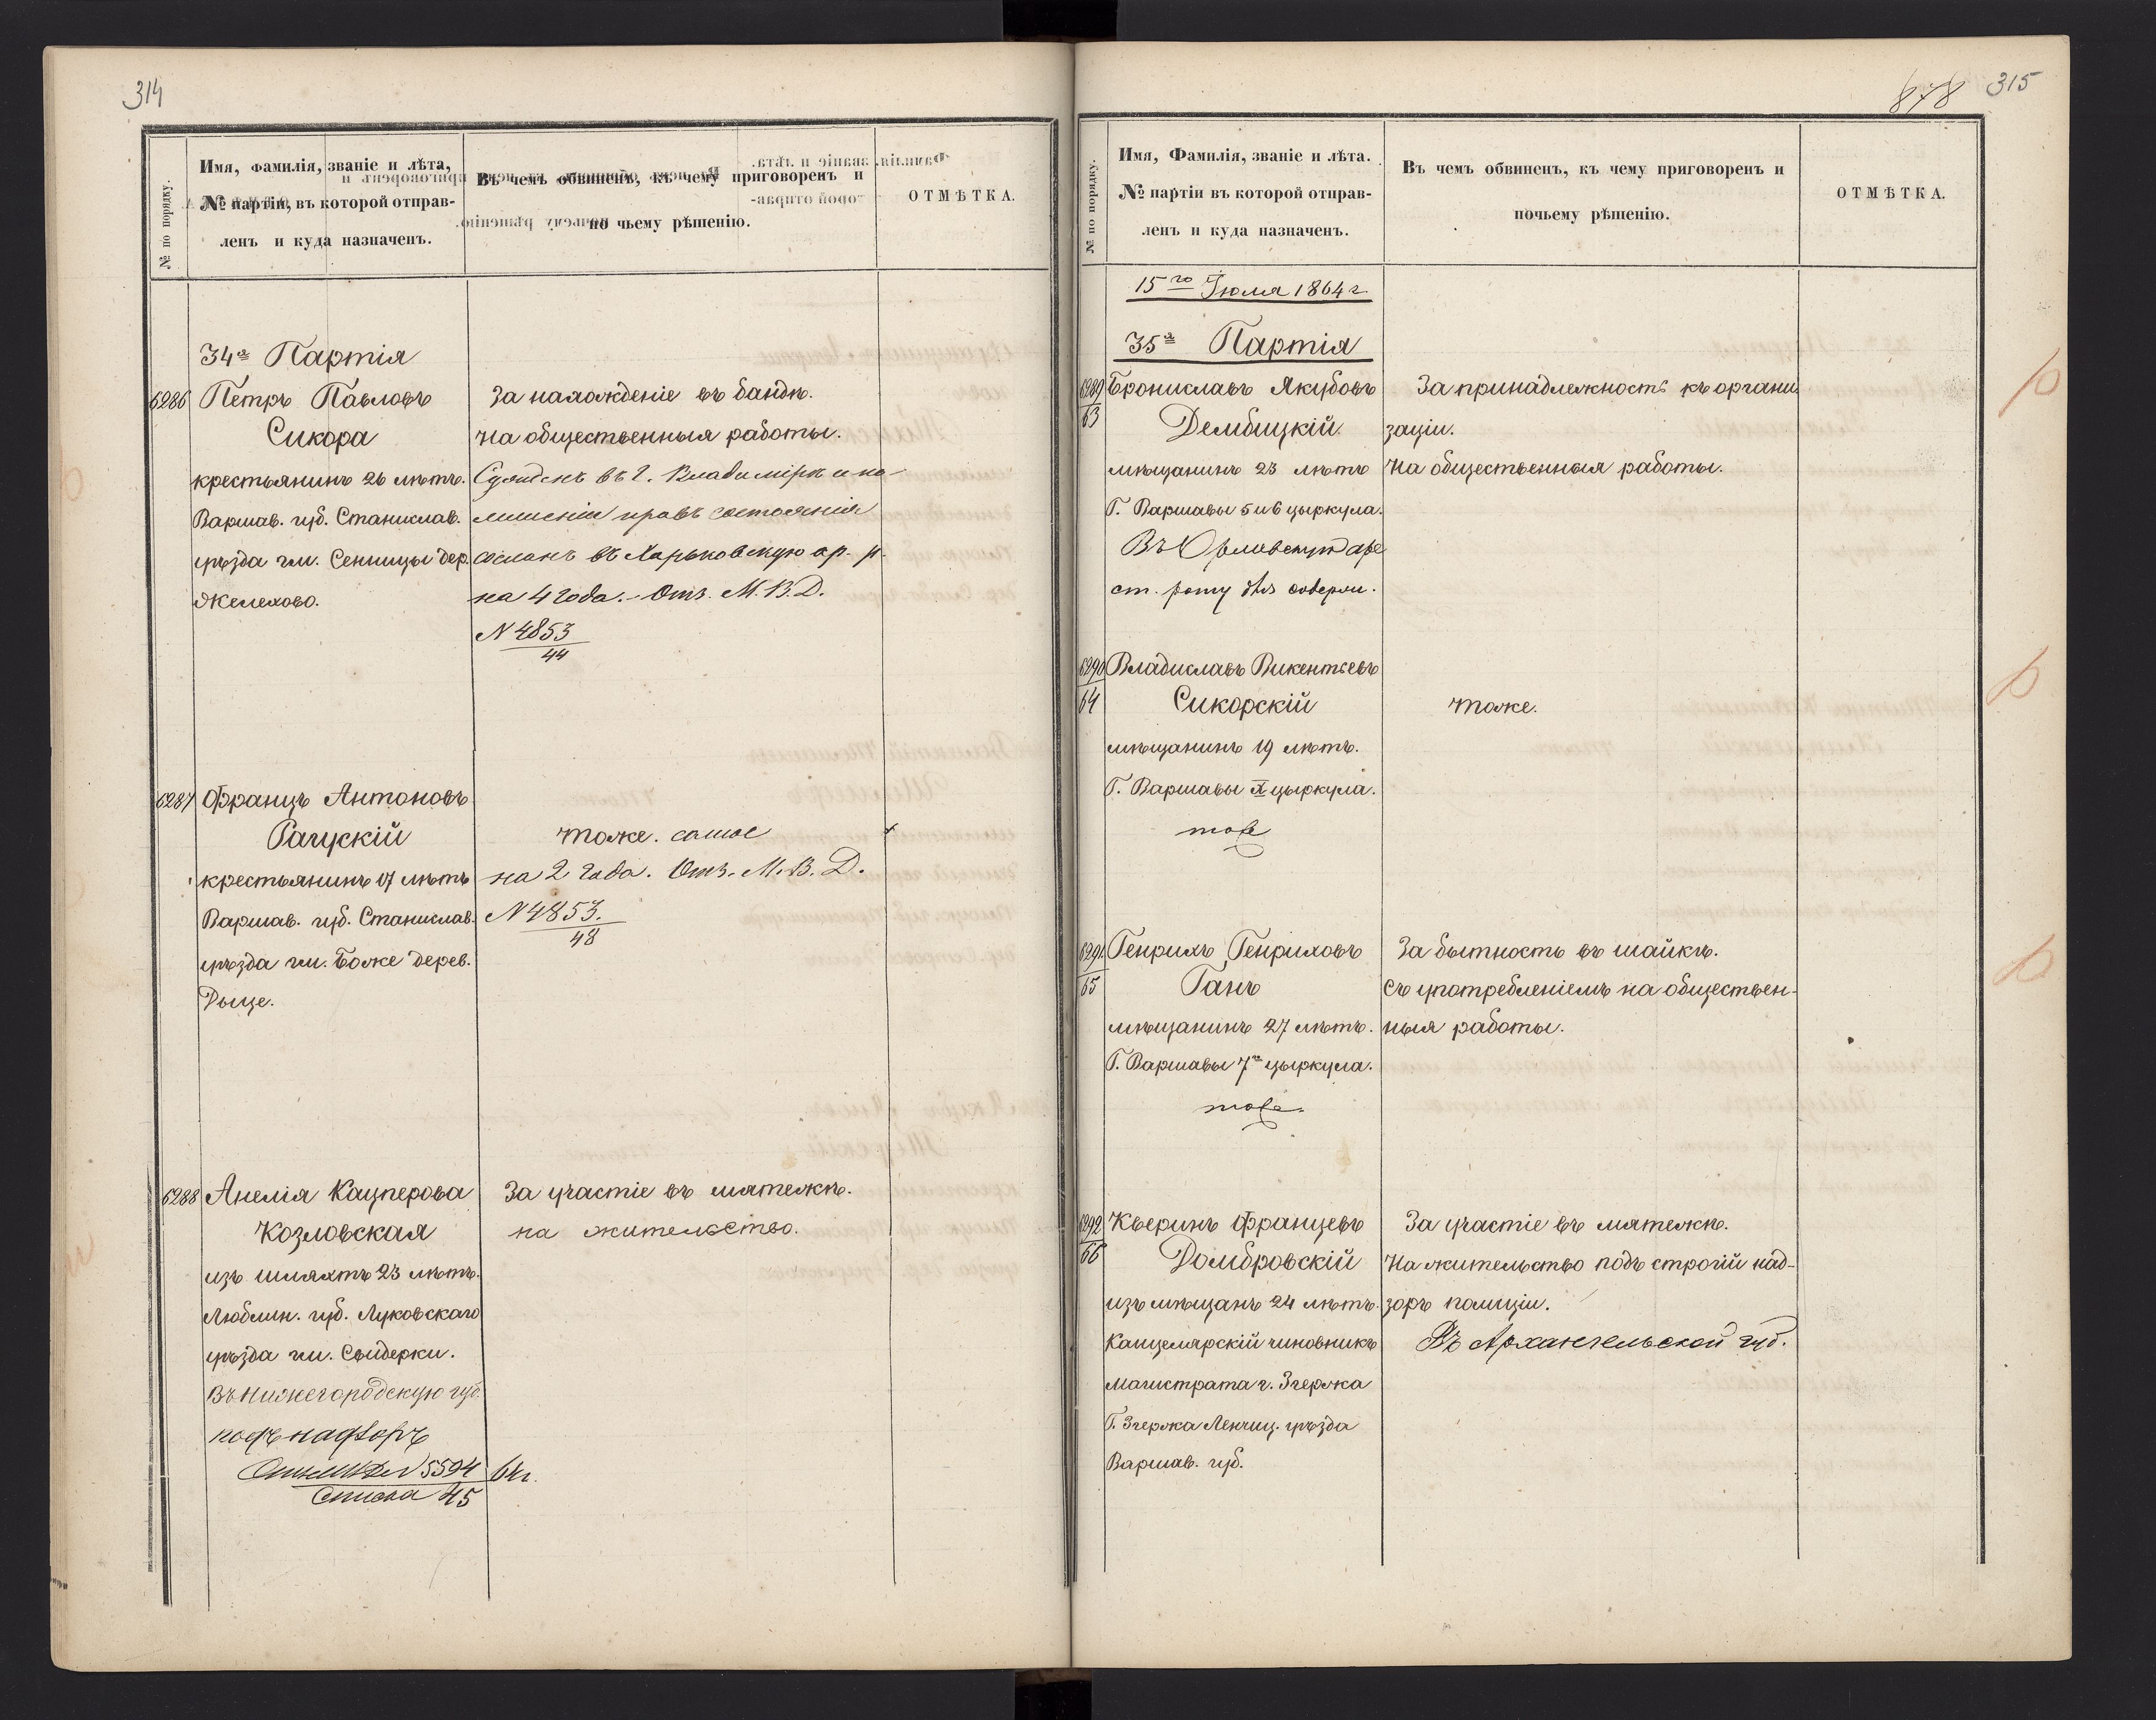 314
№ по порядку.
Имя, фамилія, званіе и лѣта,
№ партіи, въ которой отправ-
ленъ и куда назначенъ.
Въ чемъ обвиненъ, къ чему приговоренъ и
по чьему рѣшенію.
ОТМѢТКА.
34я Партія
6286
Петръ Павловъ
Сикора
крестьянинъ 26 лѣтъ.
Варшав. губ. Станислав.
уѣзда гм. Сенницы дер.
Желехово.
За нахожденіе въ бандѣ.
На общественныя работы.
Судимъ въ г. Владимірѣ и по
лишеніи правъ состоянія
сосланъ въ Харьковскую ар. р.
на 4 года. - Отз. М. В. Д.
N 4853
44
6287
Францъ Антоновъ
Рагускій
крестьянинъ 17 лѣтъ
Варшав. губ. Станислав.
уѣзда гм. Боже дерев.
Рыще.
тоже. самое
на 2 года. Отз. М. В. Д.
N 4853.
48
6288
Анелія Кацперова
Козловская
изъ шляхтъ 23 лѣтъ.
Люблин. губ. Луковскаго
уѣзда гм. Свидерки.
Въ Нижегородскую губ.
подъ надзоръ
N 5594 64 г.
Списка 45
За участіе въ мятежѣ.
на жительство.
878
315
№ по порядку.
Имя, Фамилія, званіе и лѣта.
№ партіи въ которой отправ-
ленъ и куда назначенъ.
Въ чемъ обвиненъ, къ чему приговоренъ и
почьему рѣшенію.
ОТМѢТКА.
15го Іюля 1864 г.
35я Партія
6289
63
Брониславъ Якубовъ
Дембицкій
мѣщанинъ 23 лѣтъ
Г. Варшавы 5 и 6 цыркула.
Въ Орловскую аре
ст. роту для
За принадлежность къ органи
заціи.
На общественныя работы.
6290
64
Владиславъ Викентьевъ
Сикорскій
мѣщанинъ 19 лѣтъ.
Г. Варшавы X цыркула.
тоже
тоже.
6291.
65
Генрихъ Генриховъ
Ганъ
мѣщанинъ 27 лѣтъ.
Г. Варшавы 7го цыркула.
тоже.
За бытность въ шайкѣ.
Съ употребленіемъ на обществен-
ныя работы.
6292
66
Кверинъ Францевъ
Домбровскій
изъ мѣщанъ 24 лѣтъ.
Канцелярскій чиновникъ
магистрата г. Згержа
Г. Згержа Ленчиц. уѣзда
Варшав. губ.
За участіе въ мятежѣ.
На жительство подъ строгій над-
зоръ полиціи.
Въ Архангельской губ.